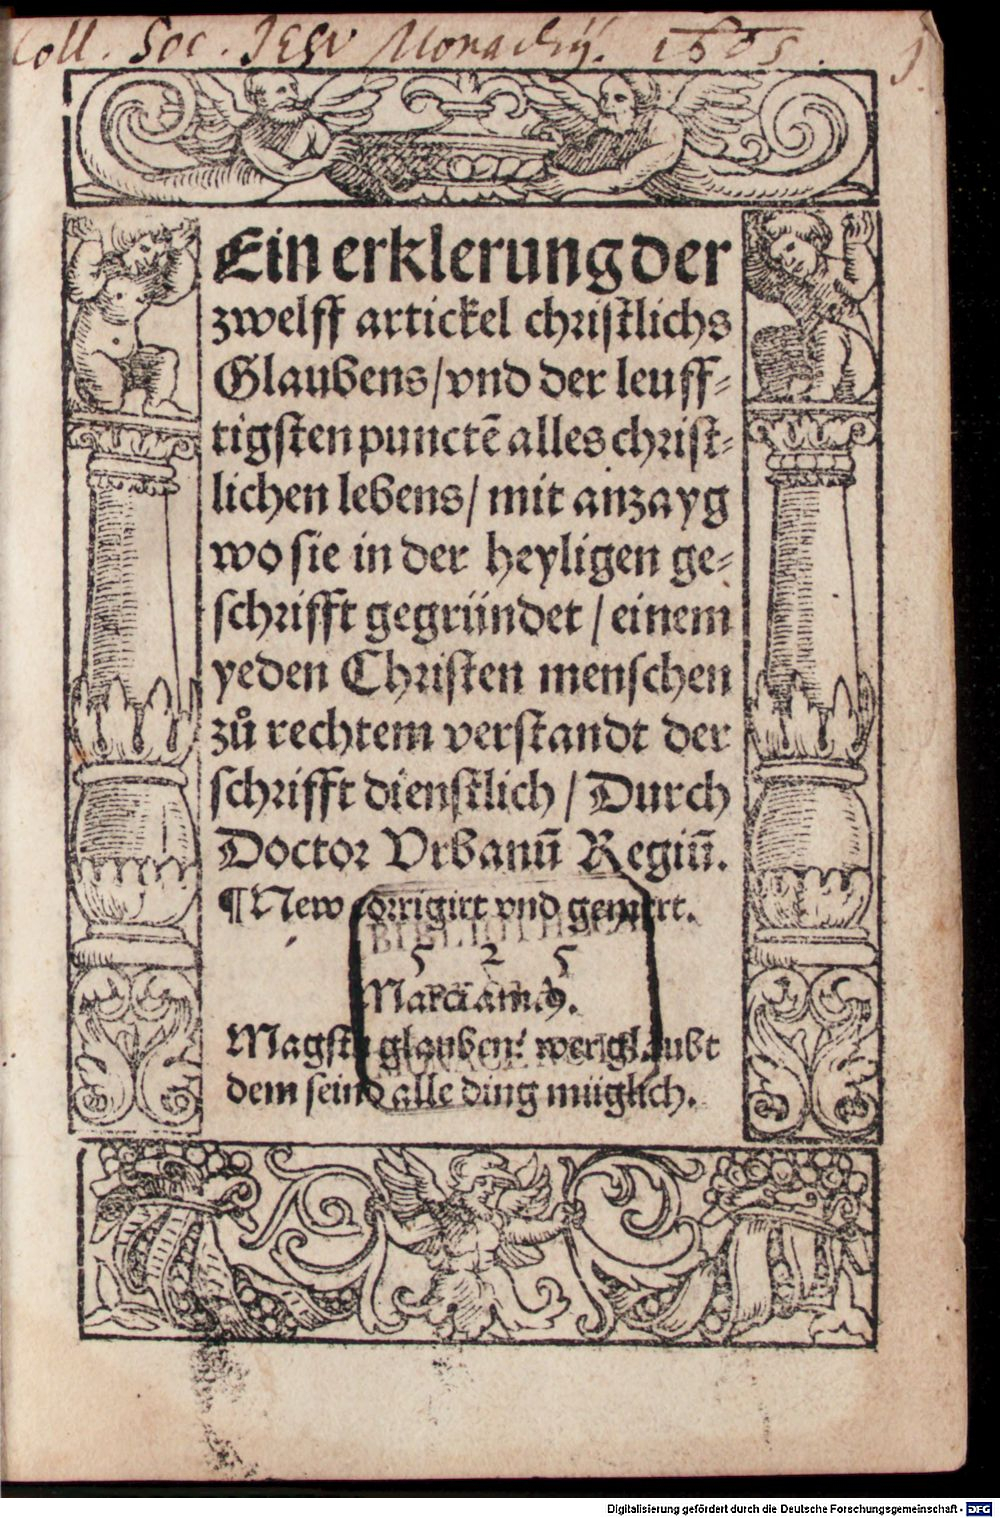 Coll. Soc. JESV Monachij. 1605. J
Ein erklerung der
zwelff artickel christlichs
Glaubens/ vnd der leuff⸗
tigsten punctē alles christ⸗
lichen lebens/ mit anzayg
wo sie in der heyligen ge⸗
schrifft gegründet / einem
yeden Christen menschen
zů rechtem verstandt der
schrifft dienstlich / Durch
Doctor Vrbanū Regiū.
¶ New corrigirt vnd gemert.
5 2 5
Marci am 9.
Magstu glauben: wer glaubt
dem seind alle ding müglich.
Digitalisierung gefördert durch die Deutsche Forschungsgemeinschaft - DFG